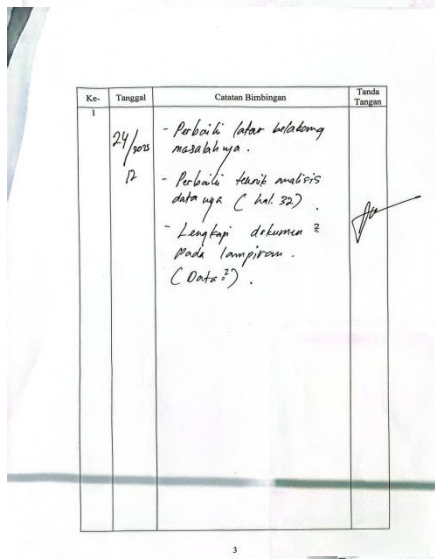 Ke- Tanggal Catatan Bimbingan Tanda Tangan
1
24/2025
12
- Perbaiki latar belakang
masalahnya.
- Perbaiki teknik analisis
datanya (hal. 32).
- Lengkapi dokumen 2
pada lampiran.
(Data 2).
3